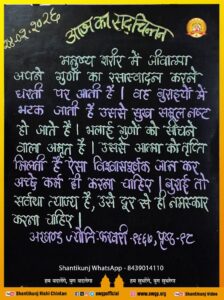 २४.०२.२०२६
आज का सद्चिन्तन
मनुष्य शरीर में जीवात्मा
अपने गुणों का रसास्वादन करने
धरती पर आती है। वह बुराइयों में
भटक जाती है उससे सुख सद्गुण नष्ट
हो जाते हैं। भलाई गुणों को सींचने
वाला अमृत है। उससे आत्मा को तृप्ति
मिलती है ऐसा विश्वासपूर्वक जान कर
अच्छे कर्म ही करना चाहिए। बुराई तो
सर्वथा त्याज्य है, उसे दूर से ही नमस्कार
करना चाहिए।
अखण्ड ज्योति फरवरी-१९६७, पृष्ठ-१८
Shantikunj WhatsApp - 8439014110
हम बदलेंगे, युग बदलेगा
हम सुधरेंगे, युग सुधरेगा
Shantikunj Rishi Chintan
awgpofficial
www.awgp.org